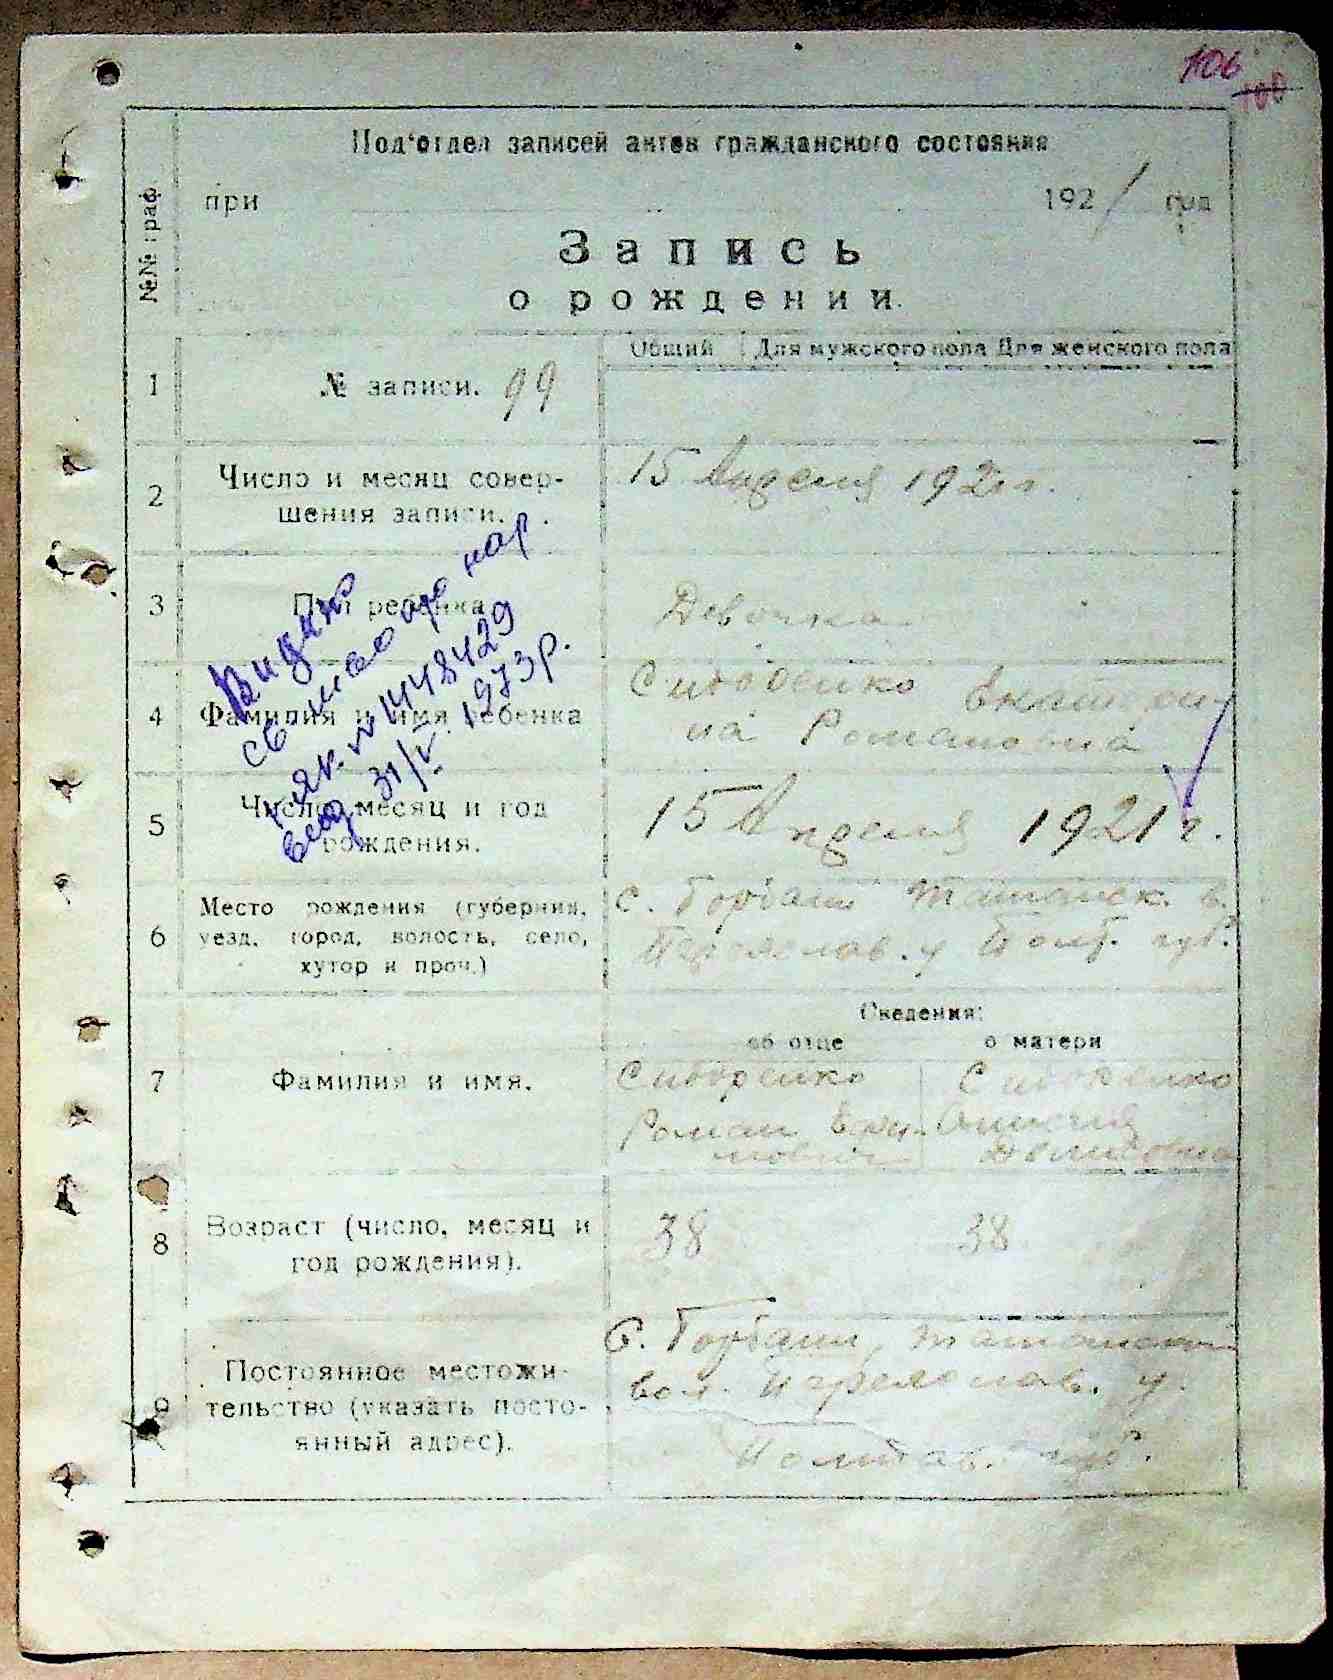 106
100
Под'отдел записей актов гражданского состояния
№№ граф.
при 1921 год
Запись
о рождении.
Общий Для мужского пола Для женского пола
1 № записи. 99
2 Число и месяц совер-
шения записи.
15 Апреля 1921 г.
3 Пол ребенка
Девочка
4 Фамилия и имя ребенка
Сидоренко Екатери-
на Романовна
5 Число, месяц и год
рождения.
15 Апреля 1921 г.
6 Место рождения (губерния,
уезд, город, волость, село,
хутор и проч.)
с. Горбани Ташанск. в.
Переяслав. у Полт. губ.
Видано
свидоцтво про нар
№ 1448429
від 31/V. 1973 р.
Сведения:
об отце о матери
7 Фамилия и имя.
Сидоренко
Роман
Сидоренко
Денисовна
8 Возраст (число, месяц и
год рождения).
38 38
9 Постоянное местожи-
тельство (указать посто-
янный адрес).
С. Горбани, Ташанской
вол. Переяслав. у.
Полтав. губ.